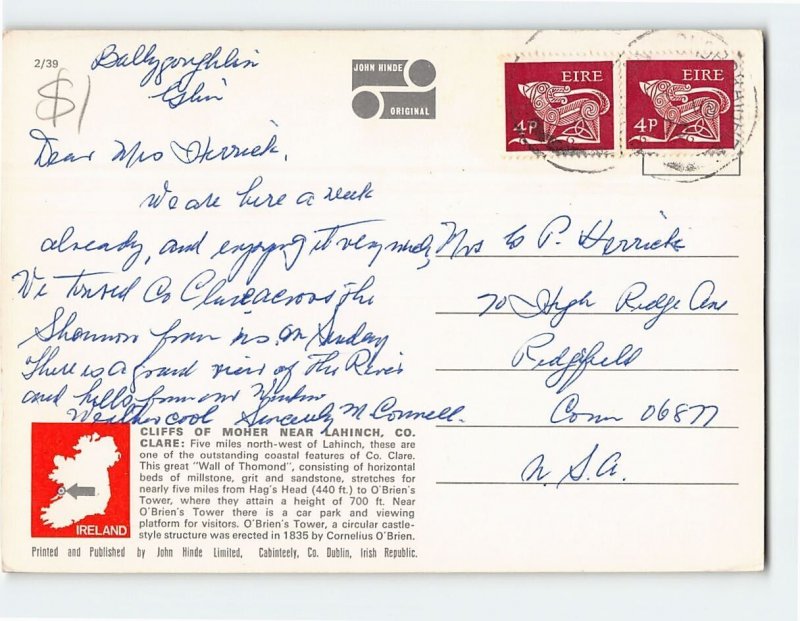 2/39
Ballygoughlin
Glin
$1
JOHN HINDE
ORIGINAL
EIRE
4P
EIRE
4P
Dear Mrs Herrick,
We are here a week
already, and enjoying it very much,
We toured Co Clare across the
Shannon from us on Sunday
There is a grand view of the River
and hills from our Window
Weather cool Sincerely M Connell.
Mrs P. Herrick
70 High Ridge Ave
Ridgefield
Conn 06877
U.S.A.
CLIFFS OF MOHER NEAR LAHINCH, CO.
CLARE: Five miles north-west of Lahinch, these are
one of the outstanding coastal features of Co. Clare.
This great "Wall of Thomond", consisting of horizontal
beds of millstone, grit and sandstone, stretches for
nearly five miles from Hag's Head (440 ft.) to O'Brien's
Tower, where they attain a height of 700 ft. Near
O'Brien's Tower there is a car park and viewing
platform for visitors. O'Brien's Tower, a circular castle-
style structure was erected in 1835 by Cornelius O'Brien.
IRELAND
Printed and Published by John Hinde Limited, Cabinteely, Co. Dublin, Irish Republic.